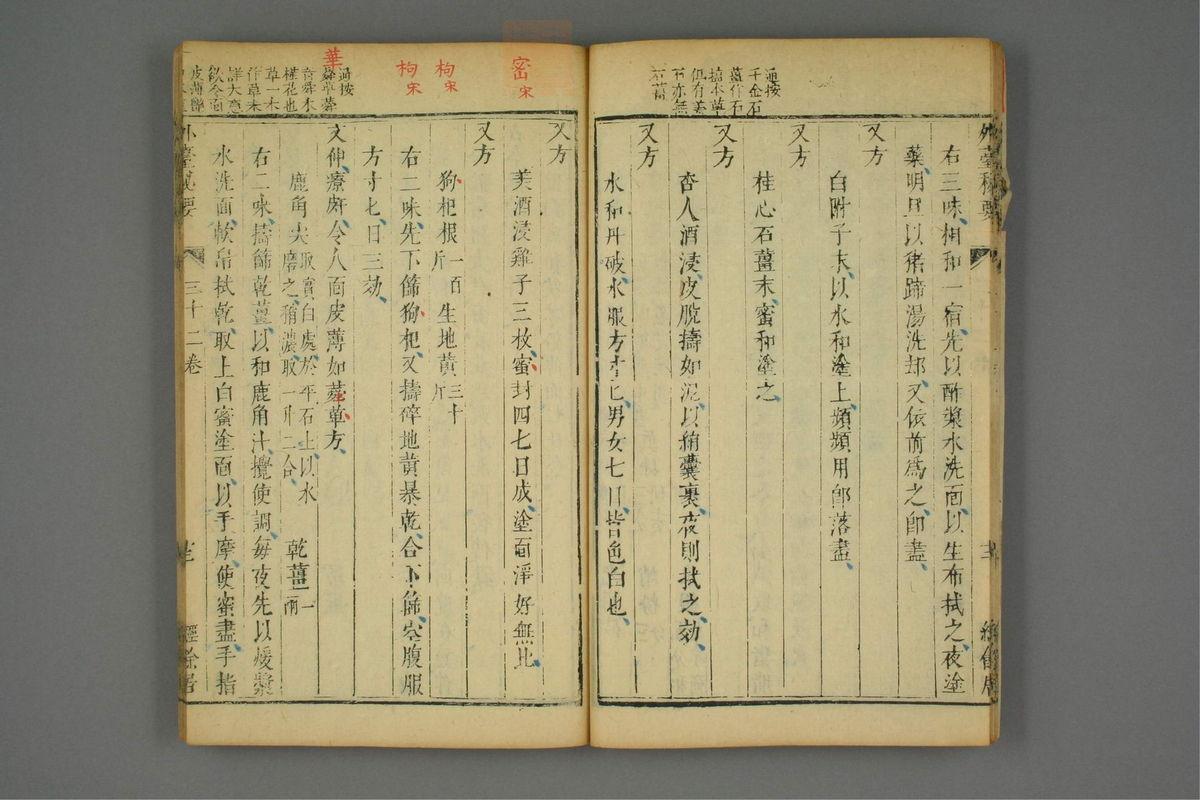 通按
千金石
薑作石
檢本草
但有姜
石亦無
石薑
右三味相和一宿先以酢漿水洗面以生布拭之夜塗
藥明旦以猪蹄湯洗却又依前爲之即盡
又方
白附子末以水和塗上頻頻用即落盡
又方
桂心石薑末蜜和塗之
又方
杏人酒浸皮脫擣如泥以絹囊裹夜則拭之効
又方
水和丹破水服方寸匕男女七日皆色白也
密宋
枸宋
枸宋
華
通按
蕣華蕣
音舜木
槿花也
草一木
作草未
詳大意
欲令面
皮薄
又方
美酒浸雞子三枚蜜封四七日成塗面淨好無比
又方
狗杞根一百斤 生地黃三十斤
右二味先下篩狗杞又擣碎地黃暴乾合下篩空腹服
方寸匕日三効
文仲療皯令人面皮薄如蕣草方
鹿角尖取實白處於平石上以水磨之稍濃取一升二合 乾薑一兩
右二味擣篩乾薑以和鹿角汁攪使調每夜先以煖漿
水洗面軟帛拭乾取上白蜜塗面以手摩使蜜盡手指
外臺秘要 三十二卷 經餘居